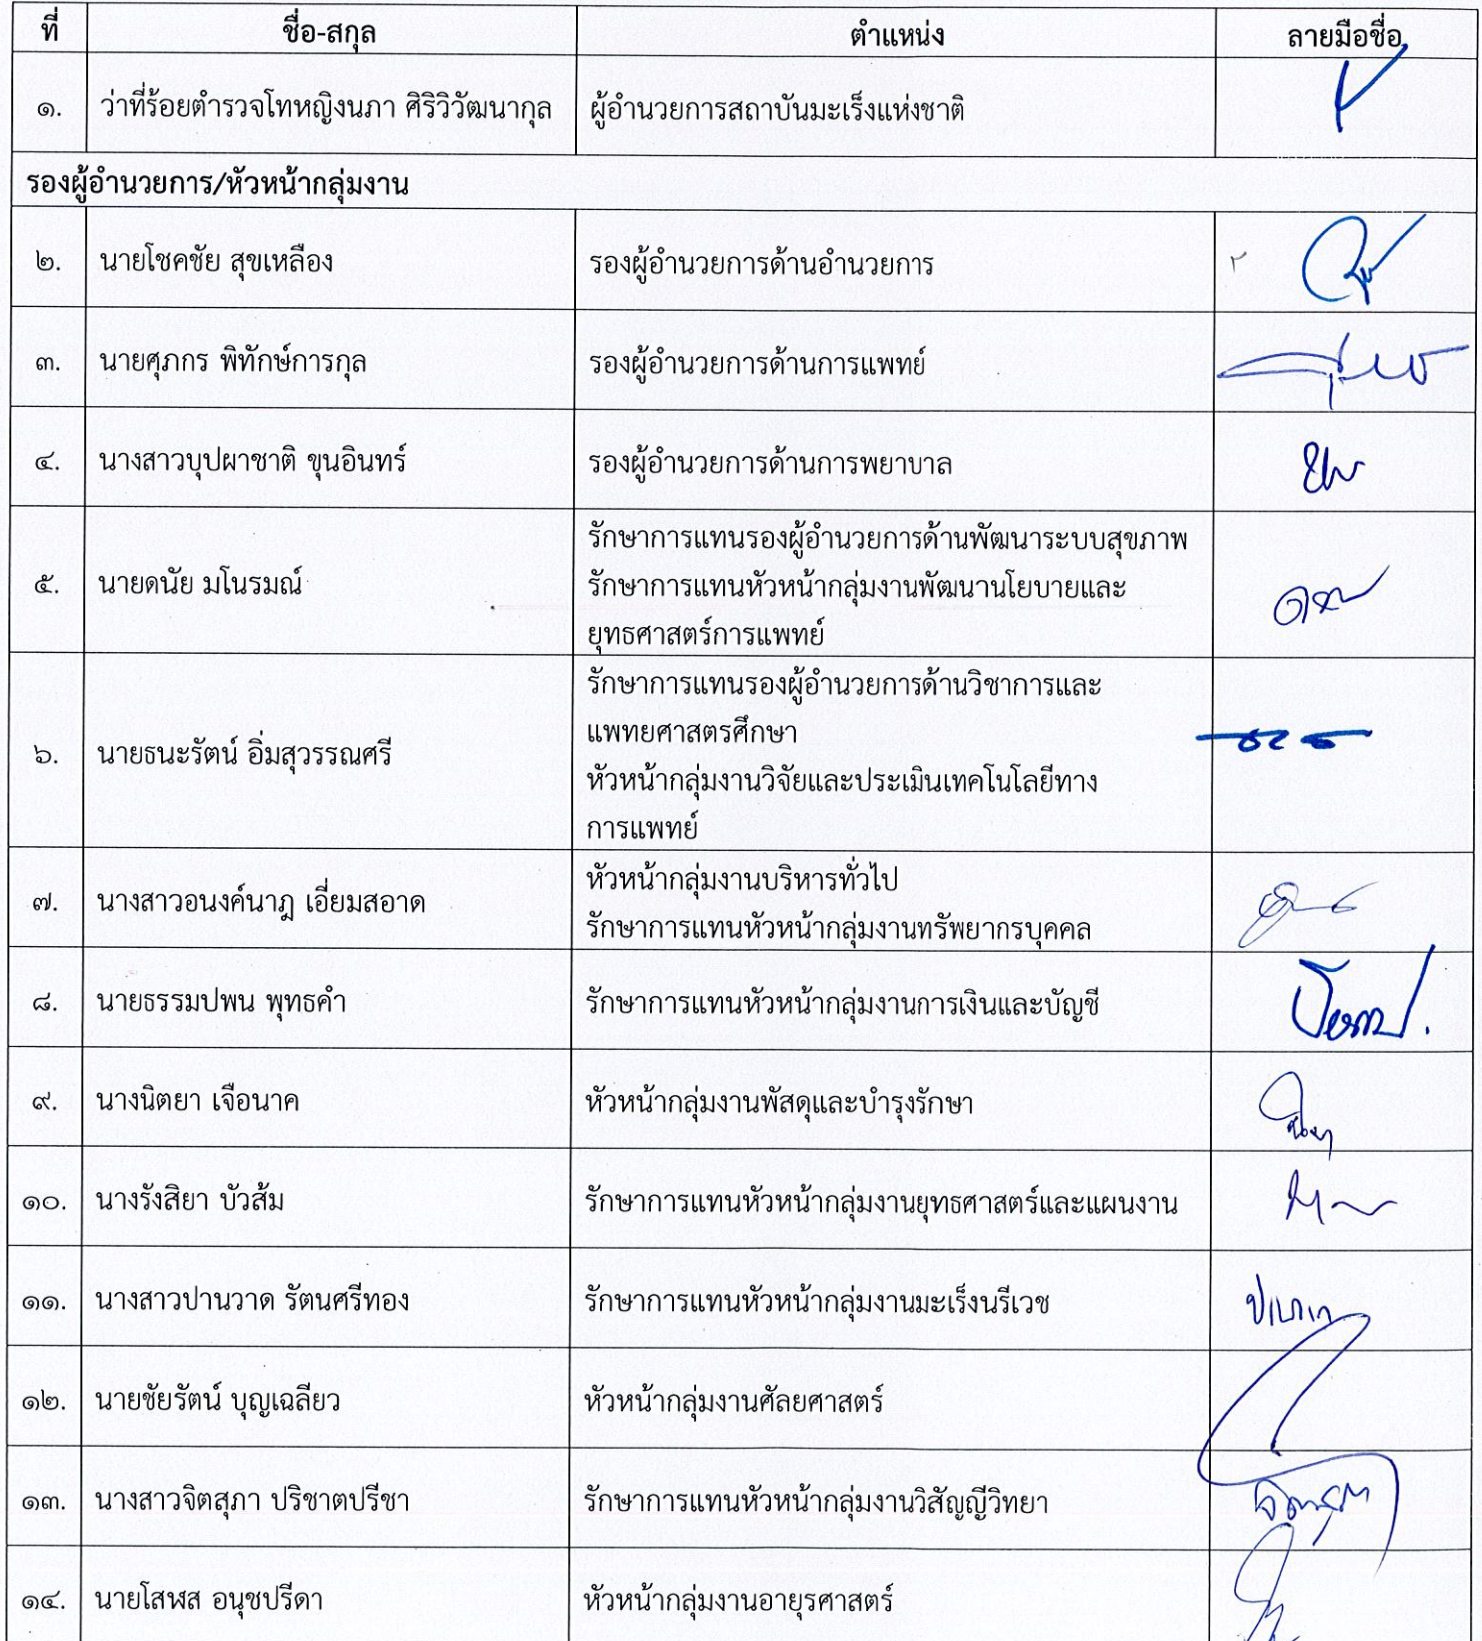 ที่ ชื่อ-สกุล ตำแหน่ง ลายมือชื่อ
๑. ว่าที่ร้อยตำรวจโทหญิงนภา ศิริวิวัฒนากุล ผู้อำนวยการสถาบันมะเร็งแห่งชาติ
รองผู้อำนวยการ/หัวหน้ากลุ่มงาน
๒. นายโชคชัย สุขเหลือง รองผู้อำนวยการด้านอำนวยการ
๓. นายศุภกร พิทักษ์การกุล รองผู้อำนวยการด้านการแพทย์
๔. นางสาวบุปผาชาติ ขุนอินทร์ รองผู้อำนวยการด้านการพยาบาล
รักษาการแทนรองผู้อำนวยการด้านพัฒนาระบบสุขภาพ
๕. นายดนัย มโนรมณ์ รักษาการแทนหัวหน้ากลุ่มงานพัฒนานโยบายและ
ยุทธศาสตร์การแพทย์
รักษาการแทนรองผู้อำนวยการด้านวิชาการและ
แพทยศาสตรศึกษา
๖. นายธนะรัตน์ อิ่มสุวรรณศรี
หัวหน้ากลุ่มงานวิจัยและประเมินเทคโนโลยีทาง
การแพทย์
หัวหน้ากลุ่มงานบริหารทั่วไป
๗. นางสาวอนงค์นาฎ เอี่ยมสอาด
รักษาการแทนหัวหน้ากลุ่มงานทรัพยากรบุคคล
๘. นายธรรมปพน พุทธคำ รักษาการแทนหัวหน้ากลุ่มงานการเงินและบัญชี
๙. นางนิตยา เจือนาค หัวหน้ากลุ่มงานพัสดุและบำรุงรักษา
๑๐. นางรังสิยา บัวส้ม รักษาการแทนหัวหน้ากลุ่มงานยุทธศาสตร์และแผนงาน
๑๑. นางสาวปานวาด รัตนศรีทอง รักษาการแทนหัวหน้ากลุ่มงานมะเร็งนรีเวช
๑๒. นายชัยรัตน์ บุญเฉลียว หัวหน้ากลุ่มงานศัลยศาสตร์
๑๓. นางสาวจิตสุภา ปริชาตปรีชา รักษาการแทนหัวหน้ากลุ่มงานวิสัญญีวิทยา
๑๔. นายโสฬส อนุชปรีดา หัวหน้ากลุ่มงานอายุรศาสตร์